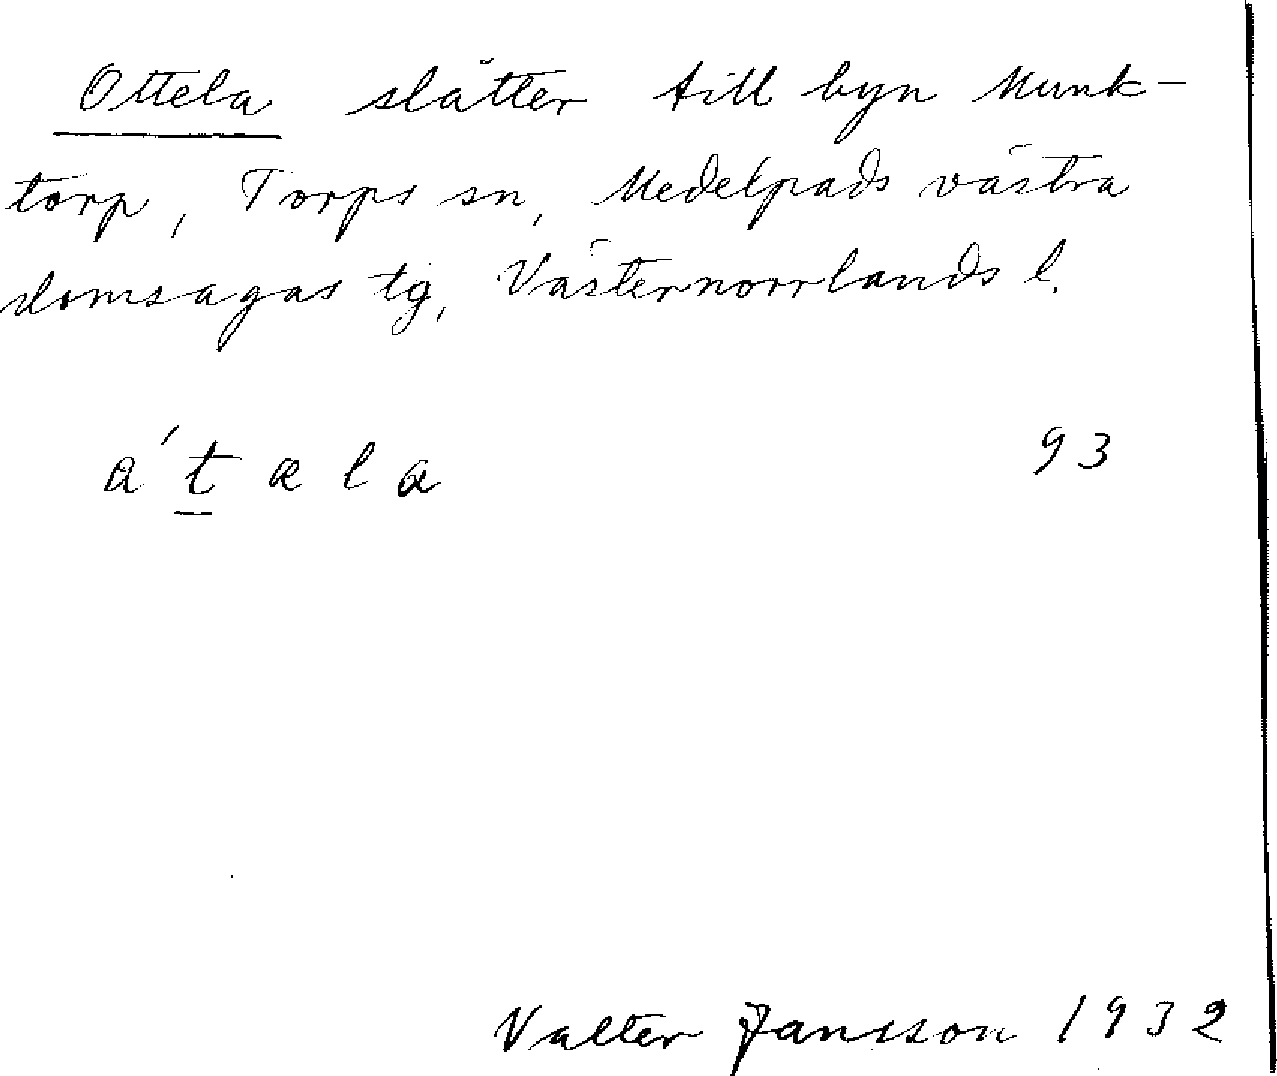 Ottela slåtter till byn Munk-
torp, Torps sn, Medelpads västra
domsagas tg, Västernorrlands l.
a ́t æ l a 93
Valter Jansson 1932